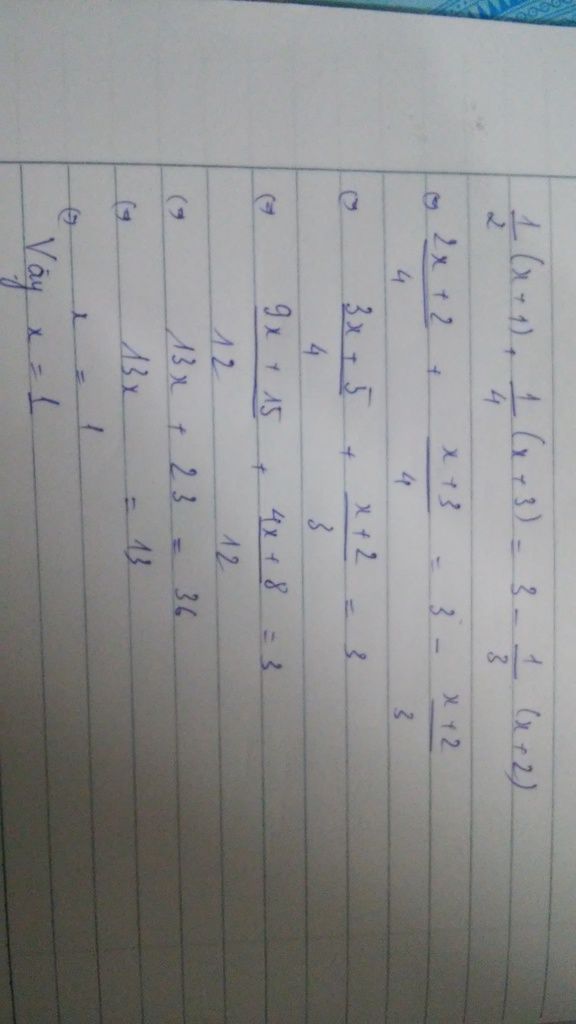 1/2 (x+1) + 1/4 (x+3) = 3 - 1/3 (x+2)
⇔ (2x+2)/4 + (x+3)/4 = 3 - (x+2)/3
⇔ (3x+5)/4 + (x+2)/3 = 3
⇔ (9x+15)/12 + (4x+8)/12 = 3
⇔ 13x + 23 = 36
⇔ 13x = 13
⇔ x = 1
Vậy x = 1